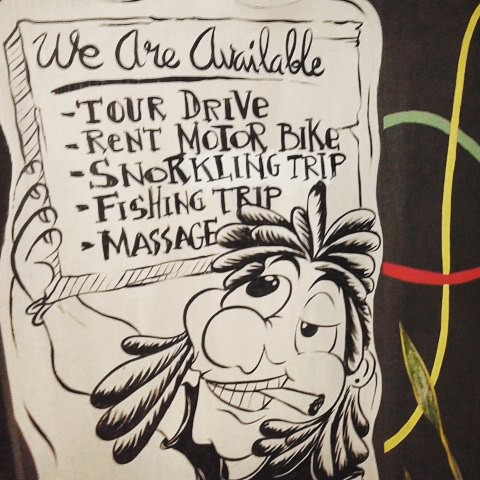 We Are Available
-TOUR DRIVE
-RENT MOTOR BIKE
-SNORKLING TRIP
-FISHING TRIP
-MASSAGE